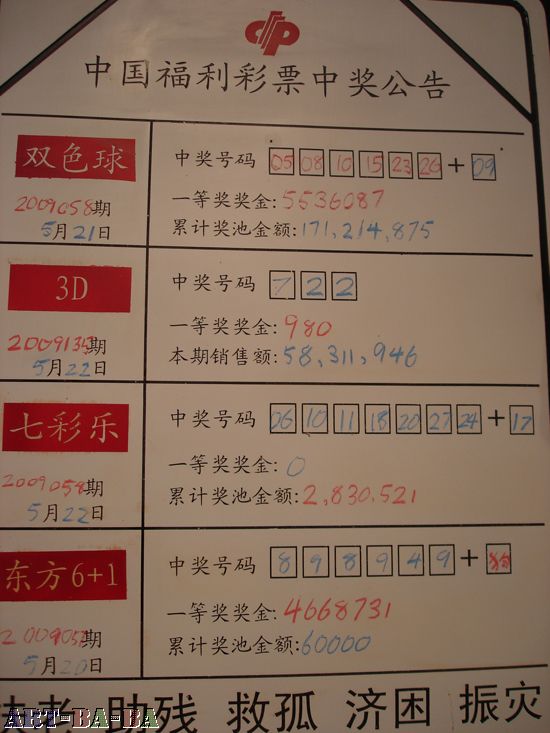 中国福利彩票中奖公告
双色球
2009058期
5月21日
中奖号码 05 08 10 15 23 26 + 09
一等奖奖金: 5536087
累计奖池金额: 171,214,875
3D
2009135期
5月22日
中奖号码 7 2 2
一等奖奖金: 980
本期销售额: 58,311,946
七彩乐
2009058期
5月22日
中奖号码 06 10 11 18 20 27 24 + 17
一等奖奖金: 0
累计奖池金额: 2,830,521
东方6+1
期
5月20日
中奖号码 8 9 8 9 4 9 + 狗
一等奖奖金: 4668731
累计奖池金额: 60000
老 助残 救孤 济困 振灾
ART-BA-BA